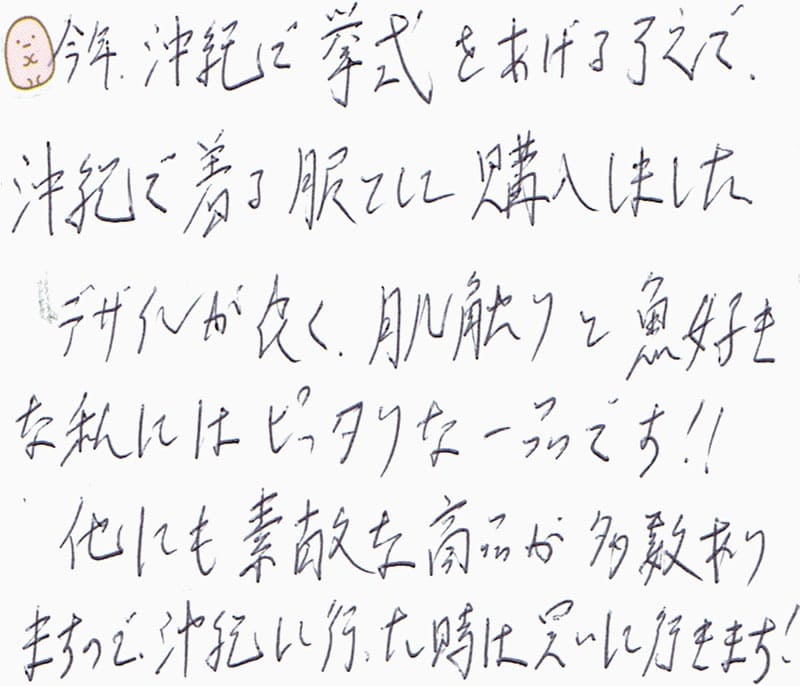 今年、沖縄で挙式をあげる予定で、
沖縄で着る服として購入しました
デザインが良く、肌触りと魚好き
な私にはピッタリな一品です!!
他にも素敵な商品が多数あり
ますので、沖縄に行った時は買いに行きます!